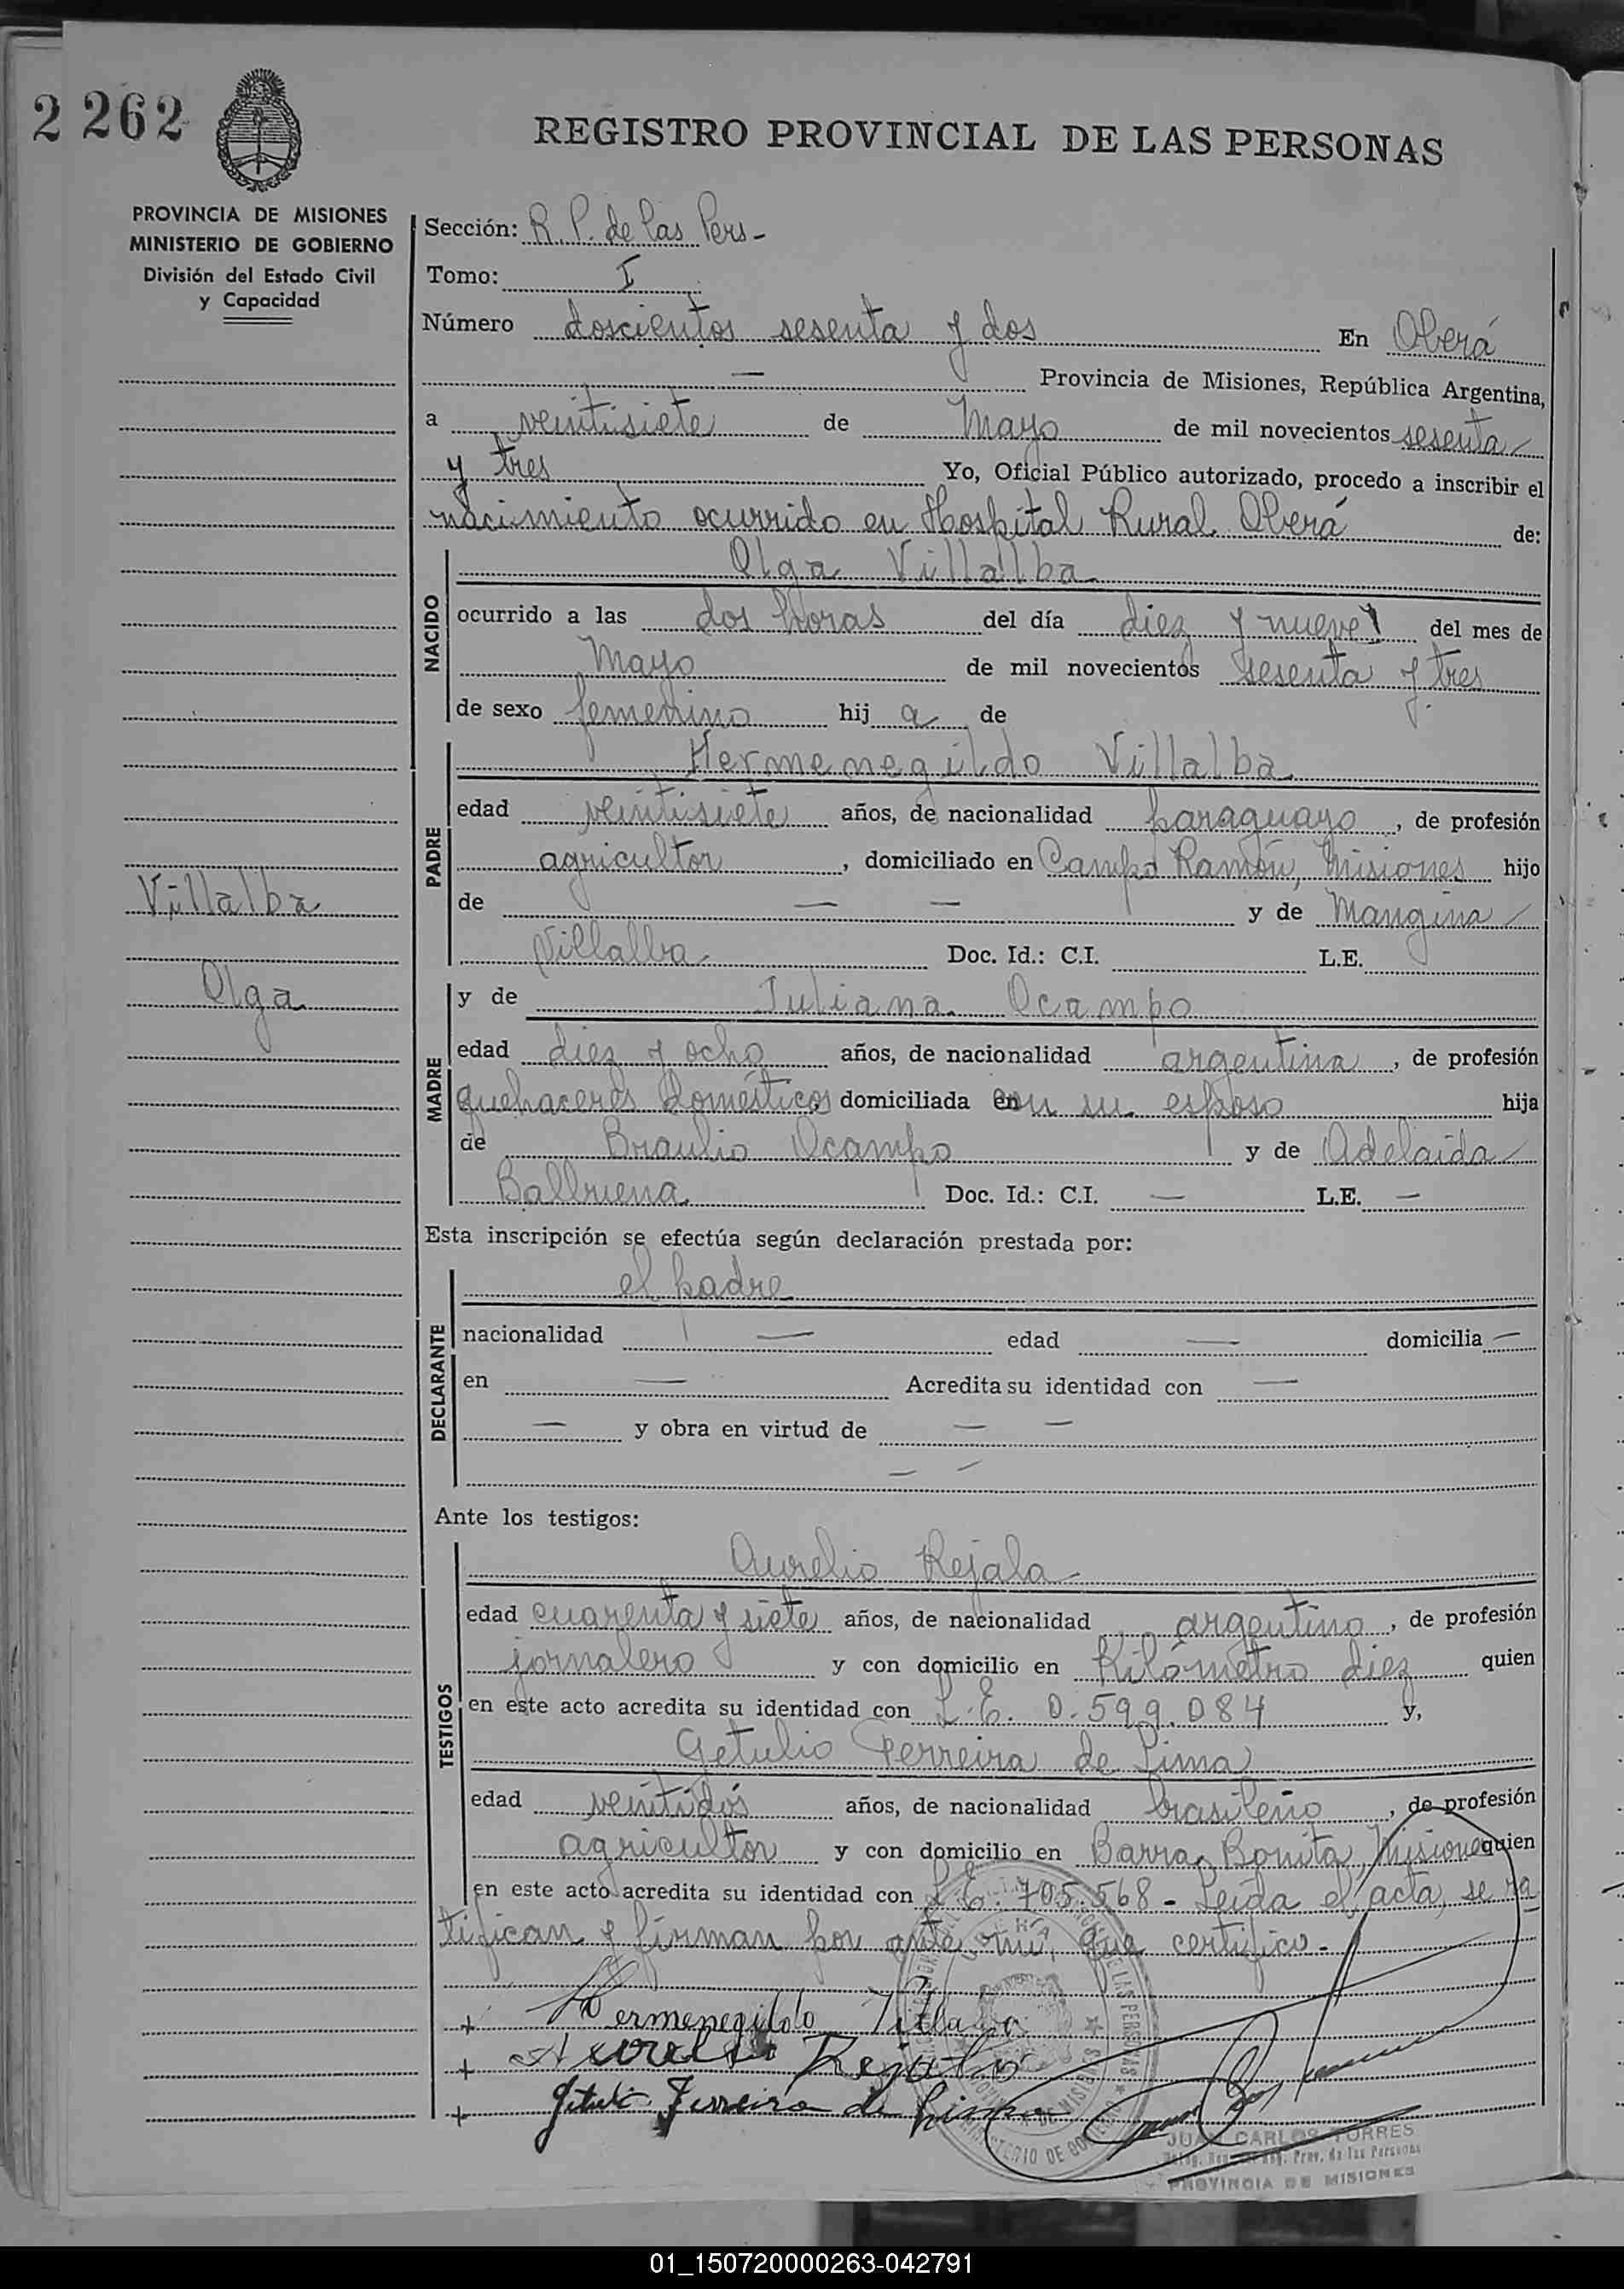 2 262
REGISTRO PROVINCIAL DE LAS PERSONAS
PROVINCIA DE MISIONES
MINISTERIO DE GOBIERNO
División del Estado Civil
y Capacidad
Sección: R. P. de las Pers-
Tomo: I
Número doscientos sesenta y dos En Oberá
— Provincia de Misiones, República Argentina,
a veintisiete de Mayo de mil novecientos sesenta
y tres Yo, Oficial Público autorizado, procedo a inscribir el
nacimiento ocurrido en Hospital Rural Oberá de:
NACIDO
Olga Villalba
ocurrido a las dos horas del día diez y nueve del mes de
Mayo de mil novecientos sesenta y tres
de sexo femenino hij a de
PADRE
Hermenegildo Villalba
edad veintisiete años, de nacionalidad paraguayo, de profesión
agricultor, domiciliado en Campo Ramón, Misiones hijo
de — — y de Mangina
Villalba Doc. Id.: C.I. L.E.
Villalba
Olga
MADRE
y de Juliana Ocampo
edad diez y ocho años, de nacionalidad argentina, de profesión
quehaceres domésticos domiciliada con su esposo hija
de Braulio Ocampo y de Adelaida
Balbuena Doc. Id.: C.I. — L.E. —
Esta inscripción se efectúa según declaración prestada por:
DECLARANTE
el padre
nacionalidad — edad — domicilia —
en — Acredita su identidad con —
— y obra en virtud de — —
— —
Ante los testigos:
TESTIGOS
Aurelio Rejala
edad cuarenta y siete años, de nacionalidad argentino, de profesión
jornalero y con domicilio en Kilómetro diez quien
en este acto acredita su identidad con L.E. 0.599.084 y,
Getulio Ferreira de Lima
edad veintidós años, de nacionalidad brasileño, de profesión
agricultor y con domicilio en Barra Bonita, Misiones quien
en este acto acredita su identidad con L.E. 705.568 - Leida el acta, se ra
tifican y firman por ante mí, que certifico.-
+ Hermenegildo Villalba
+ Aurelio Rejala
+ Getulio Ferreira de Lima
JUAN CARLOS TORRES
PROVINCIA DE MISIONES
01_150720000263-042791